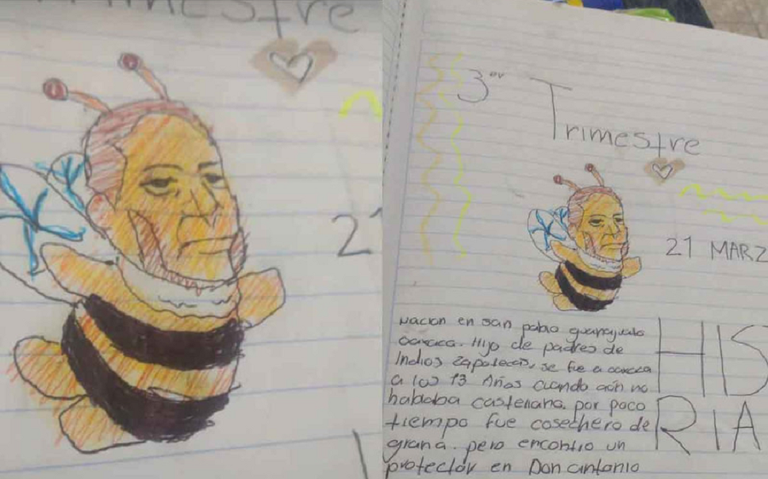 Trimestre
21
3er Trimestre
21 MARZ
HIS
RIA
Nacion en san pablo guanajuato
oaxaca. Hijo de padres de
Indios zapotecas, se fue a oaxaca
a los 13 Años cuando aún no
hablaba castellana. por poco
tiempo fue cosechero de
grana. pero encontro un
protector en Don antonio